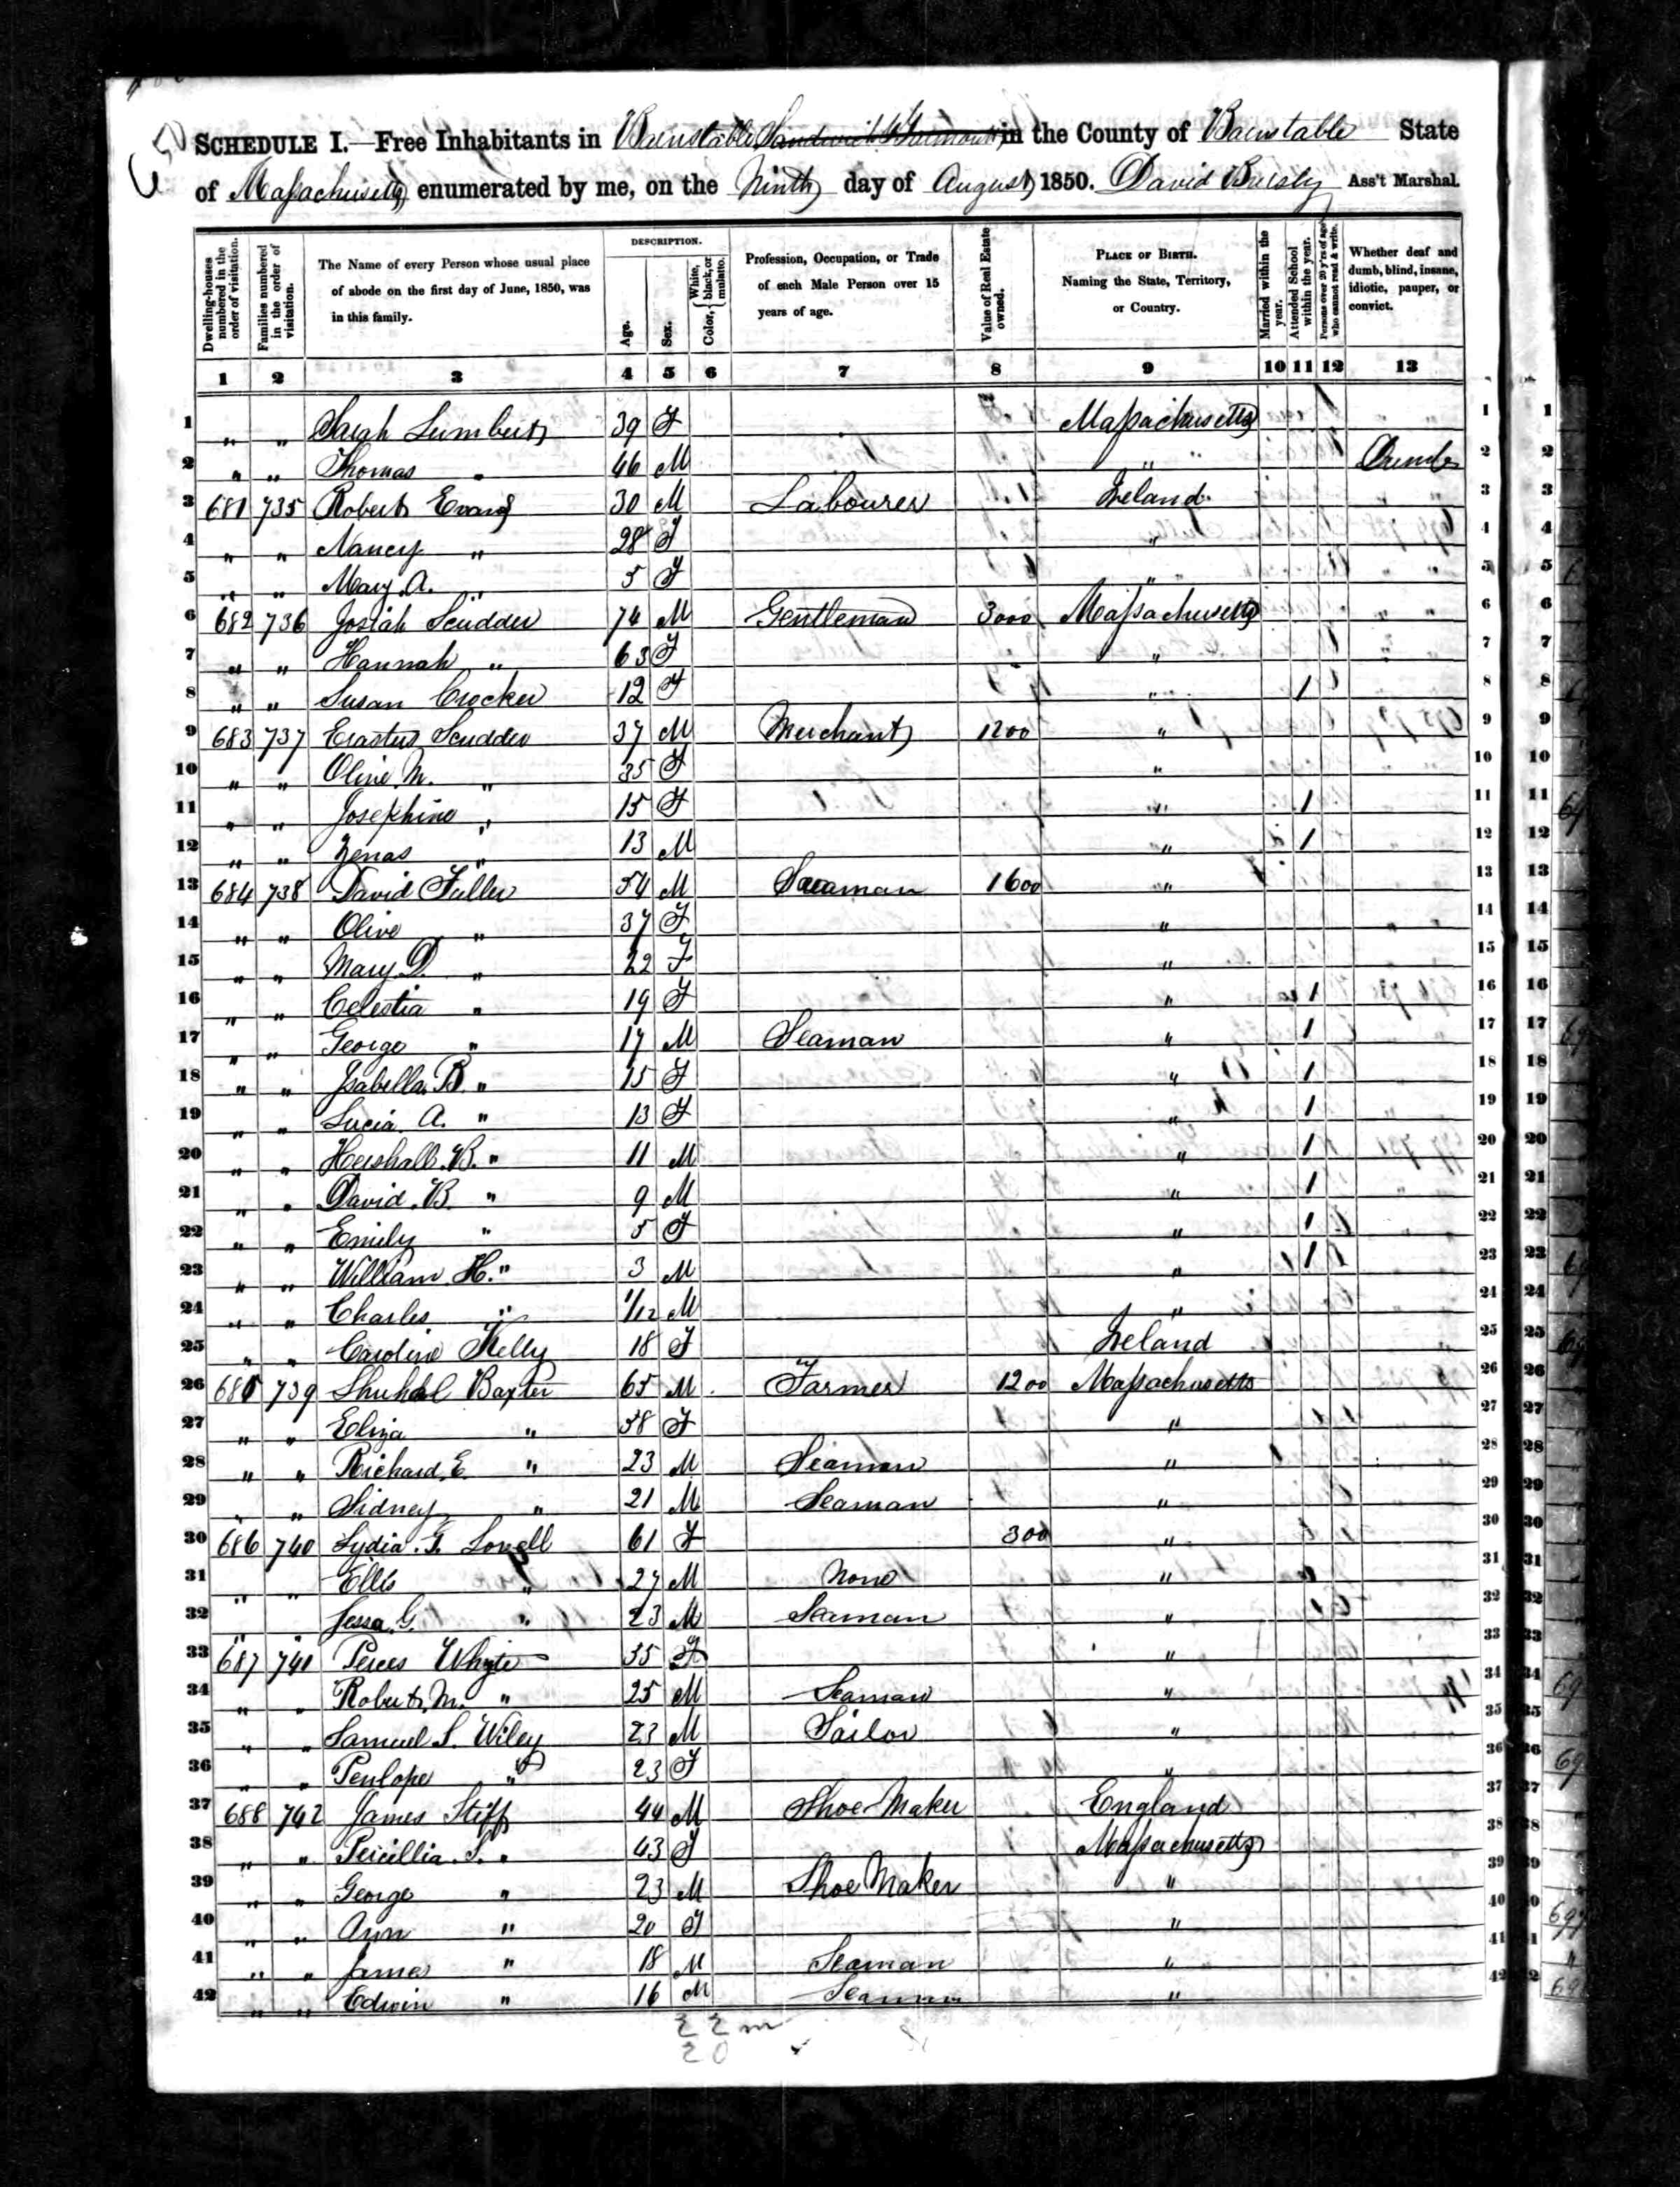 SCHEDULE I.—Free Inhabitants in Barnstable, Sandwich & Yarmouth in the County of Barnstable State
of Massachusetts enumerated by me, on the Ninth day of August 1850. David Bursley Ass't Marshal.
Dwelling-houses numbered in the order of visitation.
Families numbered in the order of visitation.
The Name of every Person whose usual place of abode on the first day of June, 1850, was in this family.
DESCRIPTION.
Age.
Sex.
Color, { White, black, or mulatto.
Profession, Occupation, or Trade of each Male Person over 15 years of age.
Value of Real Estate owned.
PLACE OF BIRTH. Naming the State, Territory, or Country.
Married within the year.
Attended School within the year.
Persons over 20 y'rs of age who cannot read & write.
Whether deaf and dumb, blind, insane, idiotic, pauper, or convict.
1 2 3 4 5 6 7 8 9 10 11 12 13
1 " " Sarah Lumbert 39 F Massachusetts 1
2 " " Thomas " 46 M " Dumb 2
3 681 735 Robert Evans 30 M Labourer Ireland 3
4 " " Nancy " 28 F " 4
5 " " Mary A. " 5 F " 5
6 682 736 Josiah Scudder 74 M Gentleman 3000 Massachusetts 6
7 " " Hannah " 63 F " 7
8 " " Susan Crocker 12 F " 1 8
9 683 737 Erastus Scudder 37 M Merchant 1200 " 9
10 " " Olive M. " 35 F " 10
11 " " Josephine " 15 F " 1 11
12 " " Zenas " 13 M " 1 12
13 684 738 David Fuller 54 M Seaman 1600 " 13
14 " " Olive " 37 F " 14
15 " " Mary D. " 22 F " 15
16 " " Celestia " 19 F " 1 16
17 " " George " 17 M Seaman " 1 17
18 " " Isabella B. " 15 F " 1 18
19 " " Lucia A. " 13 F " 1 19
20 " " Hershall B. " 11 M " 1 20
21 " " David B. " 9 M " 1 21
22 " " Emily " 5 F " 1 22
23 " " William H. " 3 M " 1 23
24 " " Charles " 1/12 M " 24
25 " " Caroline Kelly 18 F Ireland 25
26 685 739 Shubal Baxter 65 M Farmer 1200 Massachusetts 26
27 " " Eliza " 58 F " 27
28 " " Richard E. " 23 M Seaman " 28
29 " " Sidney " 21 M Seaman " 29
30 686 740 Lydia G. Lovell 61 F 300 " 30
31 " " Ellis " 27 M None " 31
32 " " Jessa G. " 23 M Seaman " 32
33 687 741 Perces Whyte 35 F " 33
34 " " Robert M. " 25 M Seaman " 34
35 " " Samuel S. Wiley 23 M Sailor " 35
36 " " Penlope " 23 F " 36
37 688 742 James Stiff 44 M Shoe Maker England 37
38 " " Percillia S. " 43 F Massachusetts 38
39 " " George " 23 M Shoe Maker " 39
40 " " Ann " 20 F " 40
41 " " James " 18 M Seaman " 41
42 " " Edwin " 16 M Seaman " 42